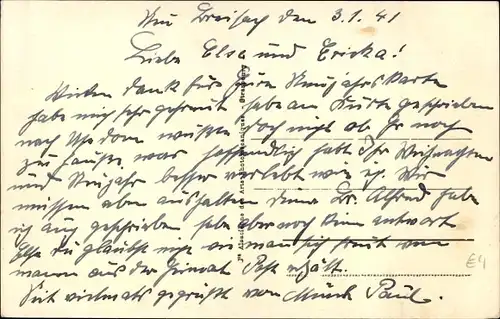 Neu Breisach den 3.1.41
Liebe Elsa und Ericka!
Vielen dank für Eure Neujahrskarte
habe mich sehr gefreut habe an Kurt geschrieben
nach wußte doch nicht ob Ihr noch
zu Hause was hoffendlich habt Ihr Weihnachten
und Neujahr besser verlebt wie ich. Wir
müssen eben aushalten denn Dr. Alfred habe
ich auch geschrieben habe aber noch keine antwort
Else du glaubst nicht wie man sich freut wen
mann aus der Heimat Post erhält.
Seit vielmals gegrüßt von Münch Paul.
E4